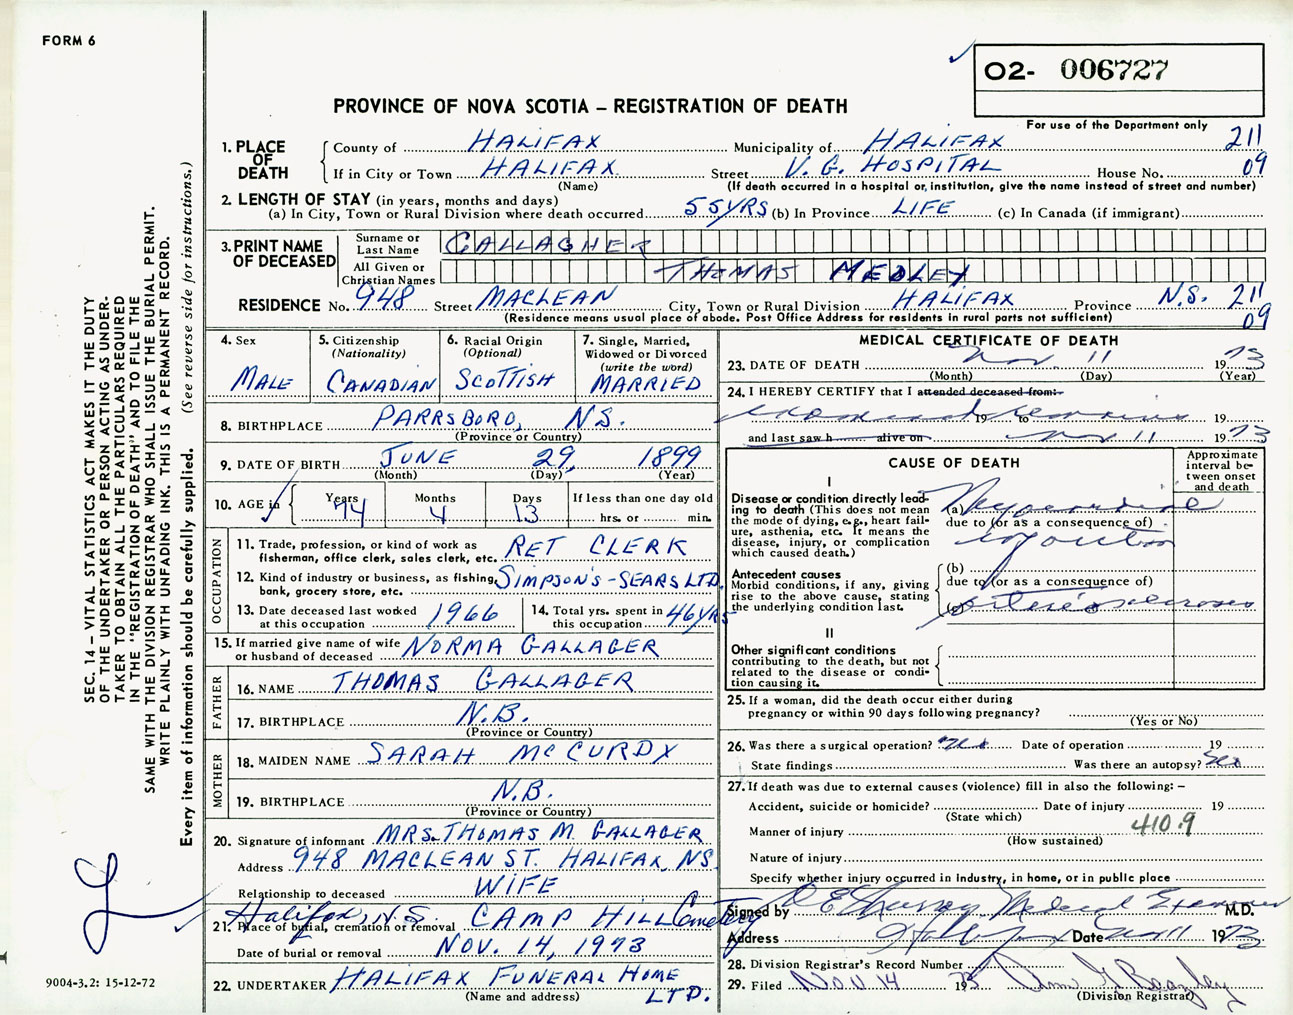 FORM 6
O2- 006727
PROVINCE OF NOVA SCOTIA – REGISTRATION OF DEATH
For use of the Department only
1. PLACE OF DEATH
County of HALIFAX Municipality of HALIFAX 211
If in City or Town HALIFAX Street V. G. HOSPITAL House No. 09
(Name) (If death occurred in a hospital or institution, give the name instead of street and number)
2. LENGTH OF STAY (in years, months and days)
(a) In City, Town or Rural Division where death occurred 55 YRS (b) In Province LIFE (c) In Canada (if immigrant)
3. PRINT NAME OF DECEASED
Surname or Last Name GALLAGHER
All Given or Christian Names THOMAS MEDLEY
RESIDENCE No. 948 Street MACLEAN City, Town or Rural Division HALIFAX Province N.S. 211
(Residence means usual place of abode. Post Office Address for residents in rural parts not sufficient) 09
4. Sex MALE
5. Citizenship (Nationality) CANADIAN
6. Racial Origin (Optional) SCOTTISH
7. Single, Married, Widowed or Divorced (write the word) MARRIED
8. BIRTHPLACE PARRSBORO, N.S.
(Province or Country)
9. DATE OF BIRTH JUNE 29, 1899
(Month) (Day) (Year)
10. AGE in Years 74 Months 4 Days 13 If less than one day old
hrs. or min.
OCCUPATION
11. Trade, profession, or kind of work as fisherman, office clerk, sales clerk, etc. RET CLERK
12. Kind of industry or business, as fishing, bank, grocery store, etc. SIMPSON'S-SEARS LTD.
13. Date deceased last worked at this occupation 1966
14. Total yrs. spent in this occupation 46 YRS
15. If married give name of wife or husband of deceased NORMA GALLAGER
FATHER
16. NAME THOMAS GALLAGER
17. BIRTHPLACE N.B.
(Province or Country)
MOTHER
18. MAIDEN NAME SARAH MCCURDY
19. BIRTHPLACE N.B.
(Province or Country)
20. Signature of informant MRS. THOMAS M. GALLAGER
Address 948 MACLEAN ST. HALIFAX, NS.
Relationship to deceased WIFE
21. Place of burial, cremation or removal Halifax, N.S. CAMP HILL Cemetery
Date of burial or removal NOV. 14, 1973
22. UNDERTAKER HALIFAX FUNERAL HOME LTD.
(Name and address)
MEDICAL CERTIFICATE OF DEATH
23. DATE OF DEATH Nov 11 1973
(Month) (Day) (Year)
24. I HEREBY CERTIFY that I attended deceased from:
19 to 19
and last saw h alive on Nov 11 1973
CAUSE OF DEATH
Approximate interval between onset and death
I
Disease or condition directly leading to death (This does not mean the mode of dying, e.g., heart failure, asthenia, etc. It means the disease, injury, or complication which caused death.)
(a) Myocardial
due to (or as a consequence of)
Antecedent causes
Morbid conditions, if any, giving rise to the above cause, stating the underlying condition last.
(b)
due to (or as a consequence of)
(c) arteriosclerosis
II
Other significant conditions contributing to the death, but not related to the disease or condition causing it.
25. If a woman, did the death occur either during pregnancy or within 90 days following pregnancy?
(Yes or No)
26. Was there a surgical operation? no Date of operation 19
State findings Was there an autopsy?
27. If death was due to external causes (violence) fill in also the following: –
Accident, suicide or homicide? Date of injury 19
(State which)
Manner of injury 410.9
(How sustained)
Nature of injury
Specify whether injury occurred in industry, in home, or in public place
Signed by Medical Examiner M.D.
Address Halifax Date Nov 11 1973
28. Division Registrar's Record Number
29. Filed Nov 14 1973
(Division Registrar)
SEC. 14 – VITAL STATISTICS ACT MAKES IT THE DUTY
OF THE UNDERTAKER OR PERSON ACTING AS UNDER-
TAKER TO OBTAIN ALL THE PARTICULARS REQUIRED
IN THE "REGISTRATION OF DEATH" AND TO FILE THE
SAME WITH THE DIVISION REGISTRAR WHO SHALL ISSUE THE BURIAL PERMIT.
WRITE PLAINLY WITH UNFADING INK. THIS IS A PERMANENT RECORD.
Every item of information should be carefully supplied. (See reverse side for instructions.)
9004-3.2: 15-12-72